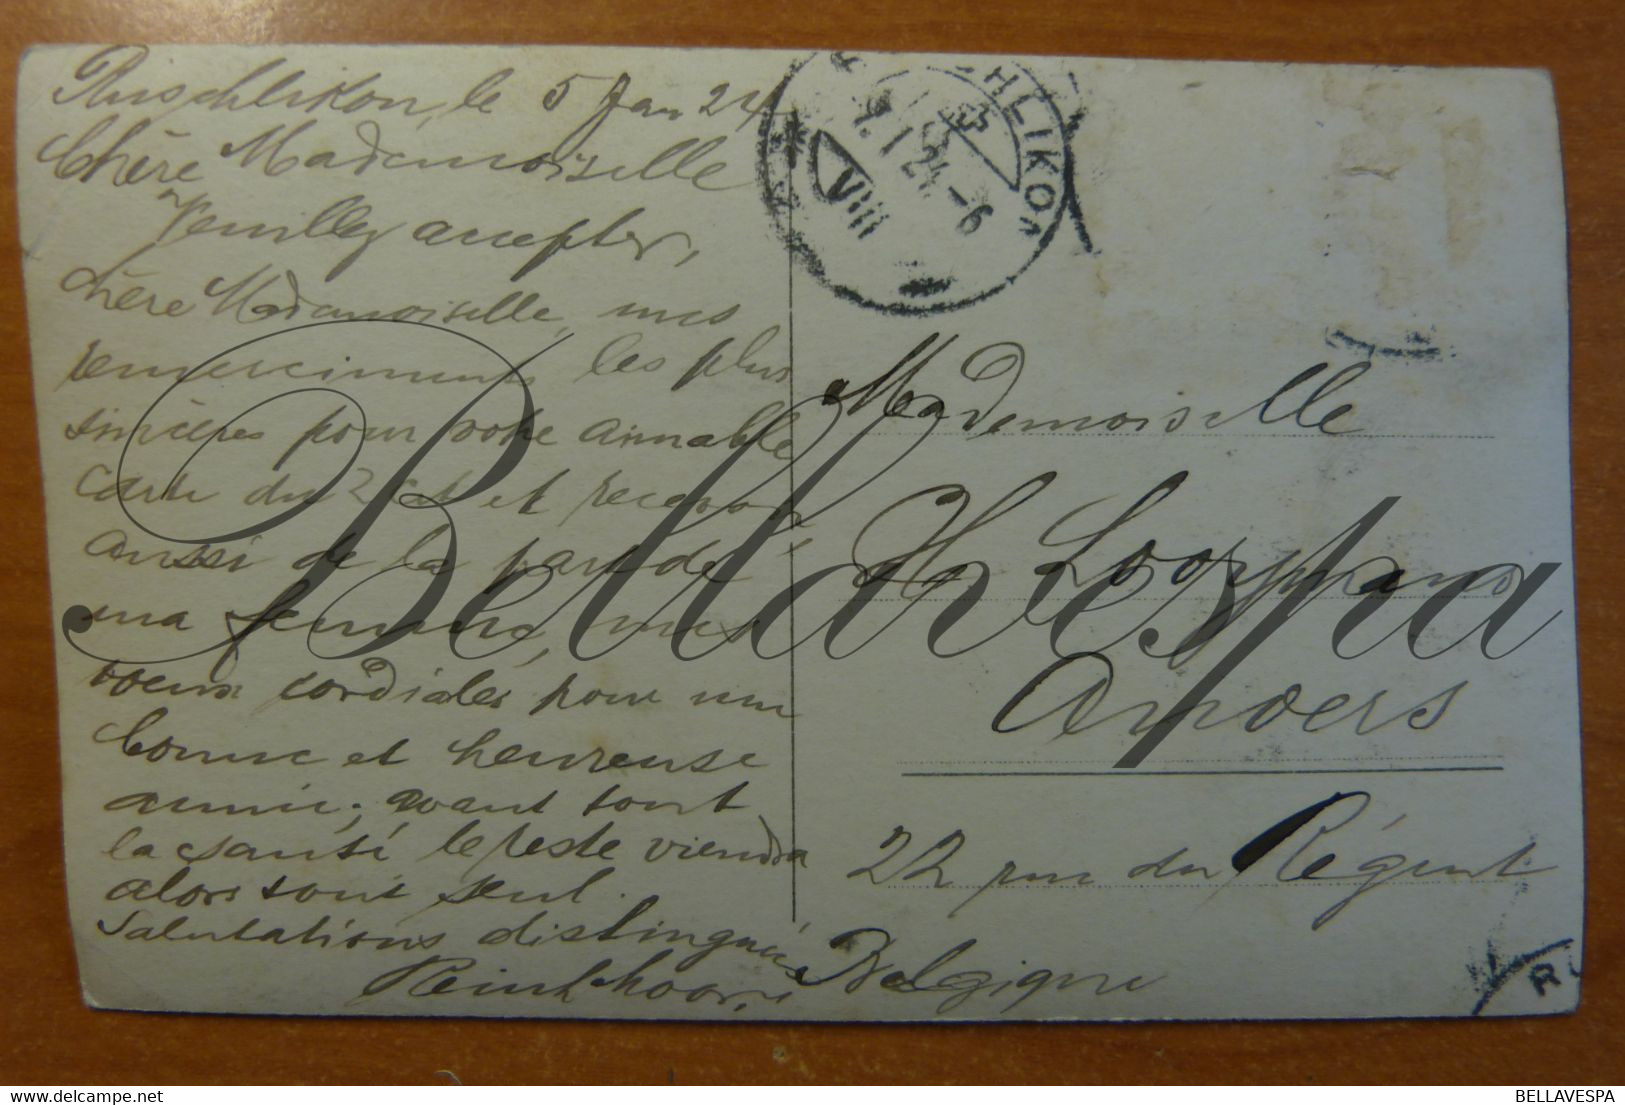 Ruschlikon, le 5 Jan 24
Chère Mademoiselle
Veuillez accepter,
chère Mademoiselle, mes
remerciments les plus
sincères pour votre aimable
carte du 2 ct et recevez
aussi de la part de
ma femme, mes
voeux cordiales pour une
bonne et heureuse
année; avant tout
la santé le reste viendra
alors tout seul.
Salutations distinguées
CHLIKON
9.I.24.-6
VIII
Mademoiselle
Loosmans
Anvers
22 rue du Régent
Belgique
R
Bellavespa
BELLAVESPA